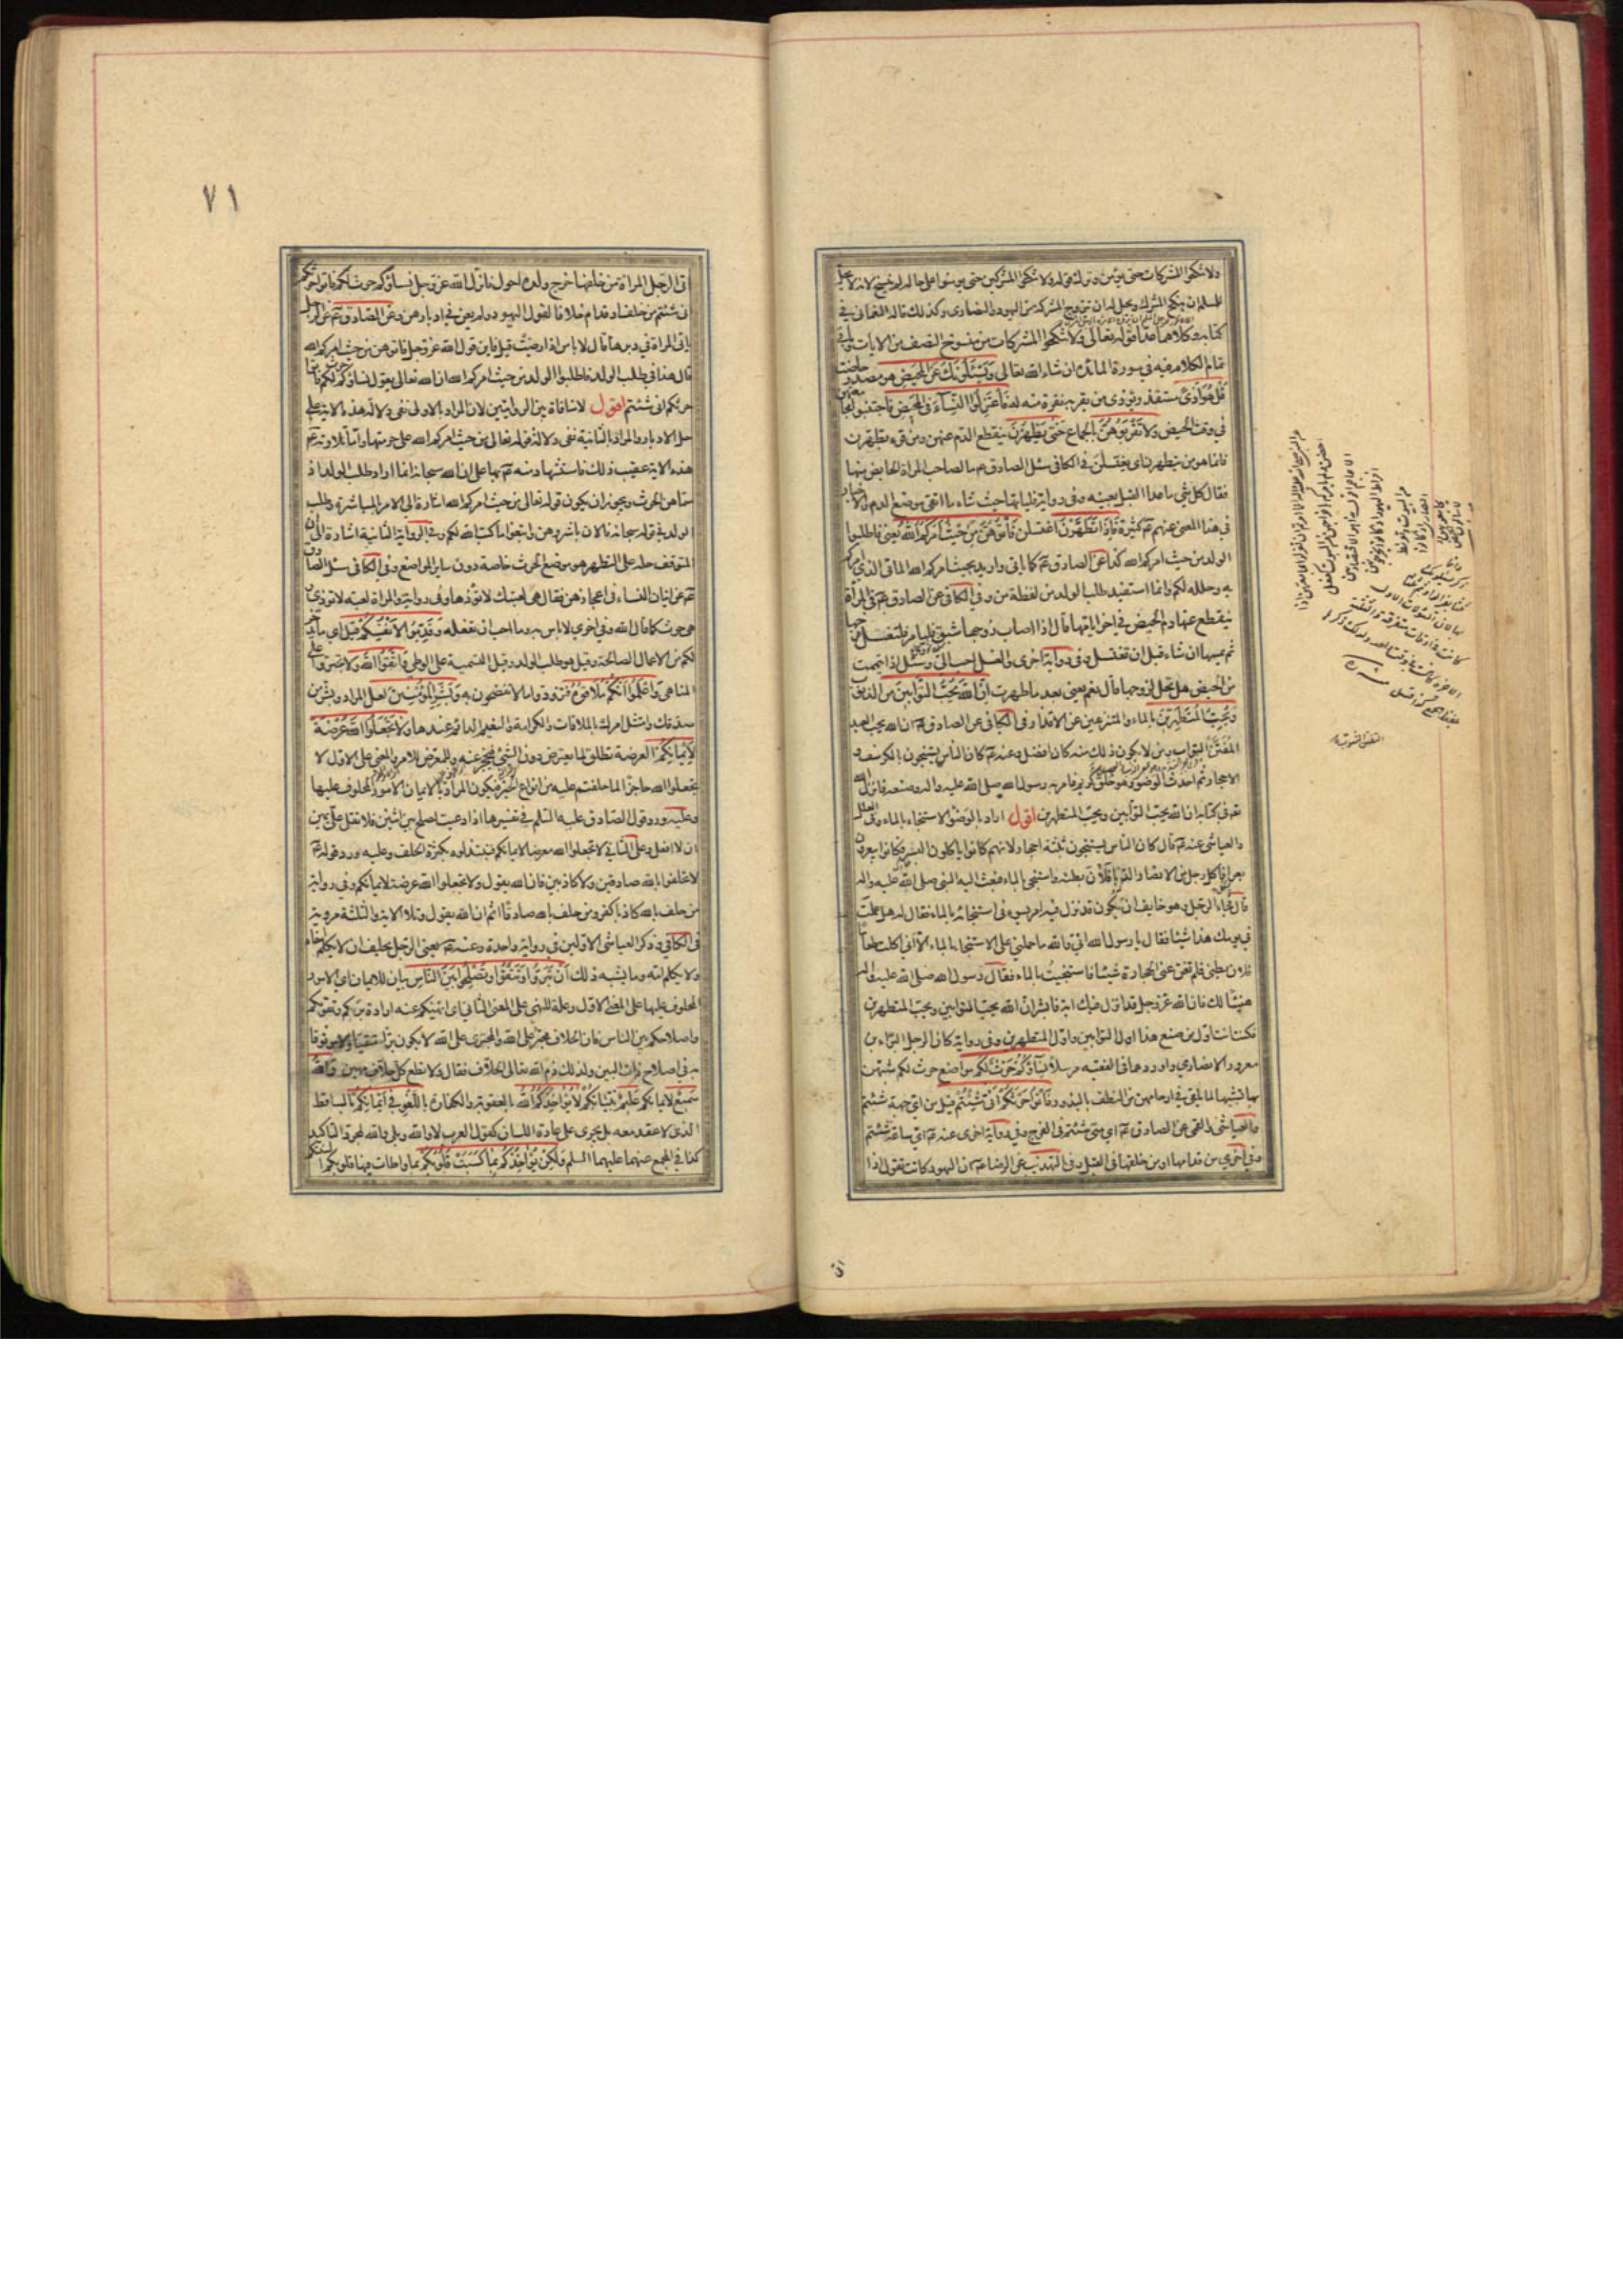 ولا تنكحوا المشركات حتى يؤمن وترك قوله ولا تنكحوا المشركين حتى يؤمنوا على حاله لم ينسخ لانه لا يحل
للمسلم ان ينكح المشرك ويحل له ان يتزوج المشركة من اليهود والنصارى وكذلك قاله النعماني في
كتابه وكلاهما عدا قوله تعالى ولا تنكحوا المشركات من منسوخ النصف من الايات وياتي
تمام الكلام فيه في سورة المائدة ان شاء الله تعالى وَيَسْئَلُونَكَ عَنِ المَحِيضِ هو مصدر حاضت
قُلْ هُوَ اَذىً مستقذر يؤذي من يقربه نفرة منه له فَاعْتَزِلُوا النِّسَاءَ فِي المَحِيضِ فاجتنبوا مجامعتهن
في وقت الحيض وَلا تَقْرَبُوهُنَّ بالجماع حَتّى يَطْهُرْنَ ينقطع الدم عنهن ومن قرء يطهرن
فانما هو من يتطهرن اي يغتسلن في الكافي سئل الصادق عم ما لصاحب المراة الحايض منها
فقال كل شيء ما عدا القبل بعينه وفي رواية فلياتها حيث شاء ما اتقى موضع الدم والاخبار
في هذا المعنى عنهم عم كثيرة فَاِذا تَطَهَّرْنَ اغتسلن فَأْتُوهُنَّ مِنْ حَيْثُ اَمَرَكُمُ اللهُ يعني فاطلبوا
الولد من حيث امركم الله كذا عن الصادق عم كما ياتي واريد بحيث امركم الله الماتى الذي امركم
به وحلله لكم وانما استفيد طلب الولد من لفظة من وفي الكافي عن الصادق عم في المراة
ينقطع عنها دم الحيض في اخر ايامها قال اذا اصاب زوجها شبق فليامرها فلتغسل فرجها
ثم يمسها ان شاء قبل ان تغتسل وفي رواية اخرى والغسل احب الي وسئل اذا تيممت
من الحيض هل تحل لزوجها قال نعم يعني بعد ما طهرت اِنَّ اللهَ يُحِبُّ التَّوّابِينَ من الذنوب
وَيُحِبُّ المُتَطَهِّرِينَ بالماء والمتنزهين عن الاقذار وفي الكافي عن الصادق عم ان الله يحب العبد
المُفَتَّن التواب ومن لا يكون ذلك منه كان افضل وعنه عم كان الناس يستنجون بالكرسف و
الاحجار ثم احدث الوضوء وهو خلق كريم فامر به رسول الله صلى الله عليه واله وصنعه فانزل الله
تعه في كتابه ان الله يحب التوابين ويحب المتطهرين اقول اراد بالوضوء الاستنجاء بالماء وفي العلل
والعياشي عنه عم قال كان الناس يستنجون بثلثة احجار لانهم كانوا ياكلون البسر فكانوا يبعرون
بعرا فاكل رجل من الانصار الدبا فلان بطنه واستنجى بالماء فبعث اليه النبي صلى الله عليه واله
قال فجاء الرجل وهو خايف ان يكون قد نزل فيه امر يسوءه في استنجائه بالماء فقال له هل عملت
في يومك هذا شيئا فقال يا رسول الله اني والله ما حملني على الاستنجاء بالماء الا اني اكلت طعاما
فلان بطني فلم تغن عني الحجارة شيئا فاستنجيت بالماء فقال رسول الله صلى الله عليه واله
هنيئا لك فان الله عز وجل قد انزل فيك اية فابشر ان الله يحب التوابين ويحب المتطهرين
فكنت انت اول من صنع هذا اول التوابين واول المتطهرين وفي رواية كان الرجل البراء بن
معرور الانصاري واوردها في الفقيه مرسلا نِساؤُكُمْ حَرْثٌ لَكُمْ مواضع حرث لكم شبههن
بها تشبيها لما يلقى في ارحامهن من النطف بالبذور فَأْتُوا حَرْثَكُمْ اَنّى شِئْتُمْ قيل من اي جهة شئتم
والعياشي والقمي عن الصادق عم اي متى شئتم في الفرج وفي رواية اخرى عنه عم اي ساعة شئتم
وفي اخرى من قدامها ومن خلفها في القبل وفي التهذيب عن الرضا عم ان اليهود كانت تقول اذا
٧١
اتى الرجل المراة من خلفها خرج ولده احول فانزل الله عز وجل نساؤكم حرث لكم فاتوا حرثكم
انى شئتم من خلف او قدام خلافا لقول اليهود ولم يعن في ادبارهن وعن الصادق عم عن الرجل
ياتي المراة في دبرها قال لا باس اذا رضيت قيل فاين قول الله عز وجل فاتوهن من حيث امركم الله
قال هذا في طلب الولد فاطلبوا الولد من حيث امركم الله ان الله تعالى يقول نساؤكم حرث لكم فاتوا
حرثكم انى شئتم اقول لا منافاة بين الروايتين لان المراد بالاولى نفي دلالة هذه الاية على
حل الادبار والمراد بالثانية نفي دلالة قوله تعالى من حيث امركم الله على حرمتها واما تلاوته عم
هذه الاية عقيب ذلك فاستشهاد منه عم بها على ان الله سبحانه انما اراد طلب الولد اذ
سماهن الحرث ويجوز ان يكون قوله تعالى من حيث امركم الله اشارة الى الامر بالمباشرة وطلب
الولد في قوله سبحانه فالان باشروهن وابتغوا ما كتب الله لكم وفي الرواية الثانية اشارة الى ان
المتوقف حله على التطهر هو موضع الحرث خاصة دون ساير المواضع وفي الكافي سئل الصادق
عم عن اتيان النساء في اعجازهن فقال هي لعبتك لا تؤذها وفي رواية والمراة لعبة لا تؤذى
هي حرث كما قال الله وفي اخرى لا باس به وما احب ان تفعله وَقَدِّمُوا لِاَنْفُسِكُمْ قيل اي ما يدخر
لكم من الاعمال الصالحة وقيل هو طلب الولد وقيل التسمية على الوطي وَاتَّقُوا اللهَ ولا تجتروا على
المناهي وَاعْلَمُوا اَنَّكُمْ مُلاقُوهُ فتزودوا ما لا تفتضحون به وَبَشِّرِ المُؤْمِنِينَ لعل المراد وبشر من
صدقك وامتثل امرك بالملاقات والكرامة والنعيم الدائم عندها وَلا تَجْعَلُوا اللهَ عُرْضَةً
لِاَيْمانِكُمْ العرضة تطلق لما يعترض دون الشيء فيحجز عنه وللمعرض للامر والمعنى على الاول لا
تجعلوا الله حاجزا لما حلفتم عليه من انواع الخير فيكون المراد بالايمان الامور المحلوف عليها
وعليه ورد قول الصادق عليه السلم في تفسيرها اذا دعيت لصلح بين اثنين فلا تقل علي يمين
ان لا افعل وعلى الثاني لا تجعلوا الله معرضا لايمانكم فتبتذلوه بكثرة الحلف وعليه ورد قوله عم
لا تحلفوا بالله صادقين ولا كاذبين فان الله يقول ولا تجعلوا الله عرضة لايمانكم وفي رواية
من حلف بالله كاذبا كفر ومن حلف بالله صادقا اثم ان الله يقول وتلا الاية والثلثة مروية
في الكافي وذكر العياشي الاولين في رواية واحدة وعنه عم يعني الرجل يحلف ان لا يكلم اخاه
ولا يكلم امه وما يشبه ذلك اَنْ تَبَرُّوا وَتَتَّقُوا وَتُصْلِحُوا بَيْنَ النّاسِ بيان للايمان اي الامور
المحلوف عليها على المعنى الاول وعلة للنهي على المعنى الثاني اي انهيكم عنه ارادة بركم وتقويكم
واصلاحكم بين الناس فان الحلاف مجتر على الله والمجتري على الله لا يكون برا متقيا ولا موثوقا
به في اصلاح ذات البين ولذلك ذم الله تعالى الحلاف فقال ولا تطع كل حلاف مهين وَاللهُ
سَمِيعٌ لايمانكم عَلِيمٌ بنياتكم لا يُؤاخِذُكُمُ اللهُ بالعقوبة والكفارة بِاللَّغْوِ فِي اَيْمانِكُمْ بالساقط
الذي لا عقد معه بل يجري على عادة اللسان كقول العرب لا والله وبلى والله لمجرد التاكيد
كذا في المجمع عنهما عليهما السلم وَلكِنْ يُؤاخِذُكُمْ بِما كَسَبَتْ قُلُوبُكُمْ بما واطات فيها قلوبكم السنتكم